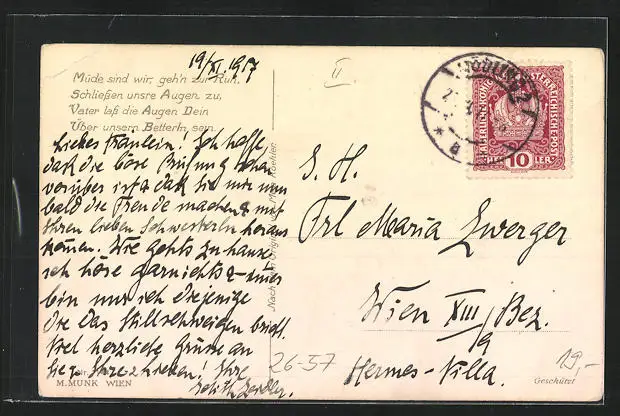 19/XI 1917
II
Müde sind wir, geh'n zur Ruh,
Schließen unsre Augen zu,
Vater laß die Augen Dein
Über unsern Bettlein sein.
Liebes Fräulein! Ich hoffe,
daß die böse Prüfung schon
vorüber ist & daß Sie mir nun
bald die Freude machen & mit
Ihren lieben Schwesterln heraus
kommen. Wie gehts zu hause
ich höre garnichts &
bin nur ich diejenige
die das Stillschweigen bricht.
Viel herzliche Grüsse an
Sie Ihre
Edith
Nach dem Original v. M. Koehler
M. MUNK WIEN
S. H.
Frl Maria Zwerger
Wien XIII/9 Bez.
Hermes-Villa.
26-57
19,-
Geschützt
ÖSTERREICHISCHE POST
10 HELLER